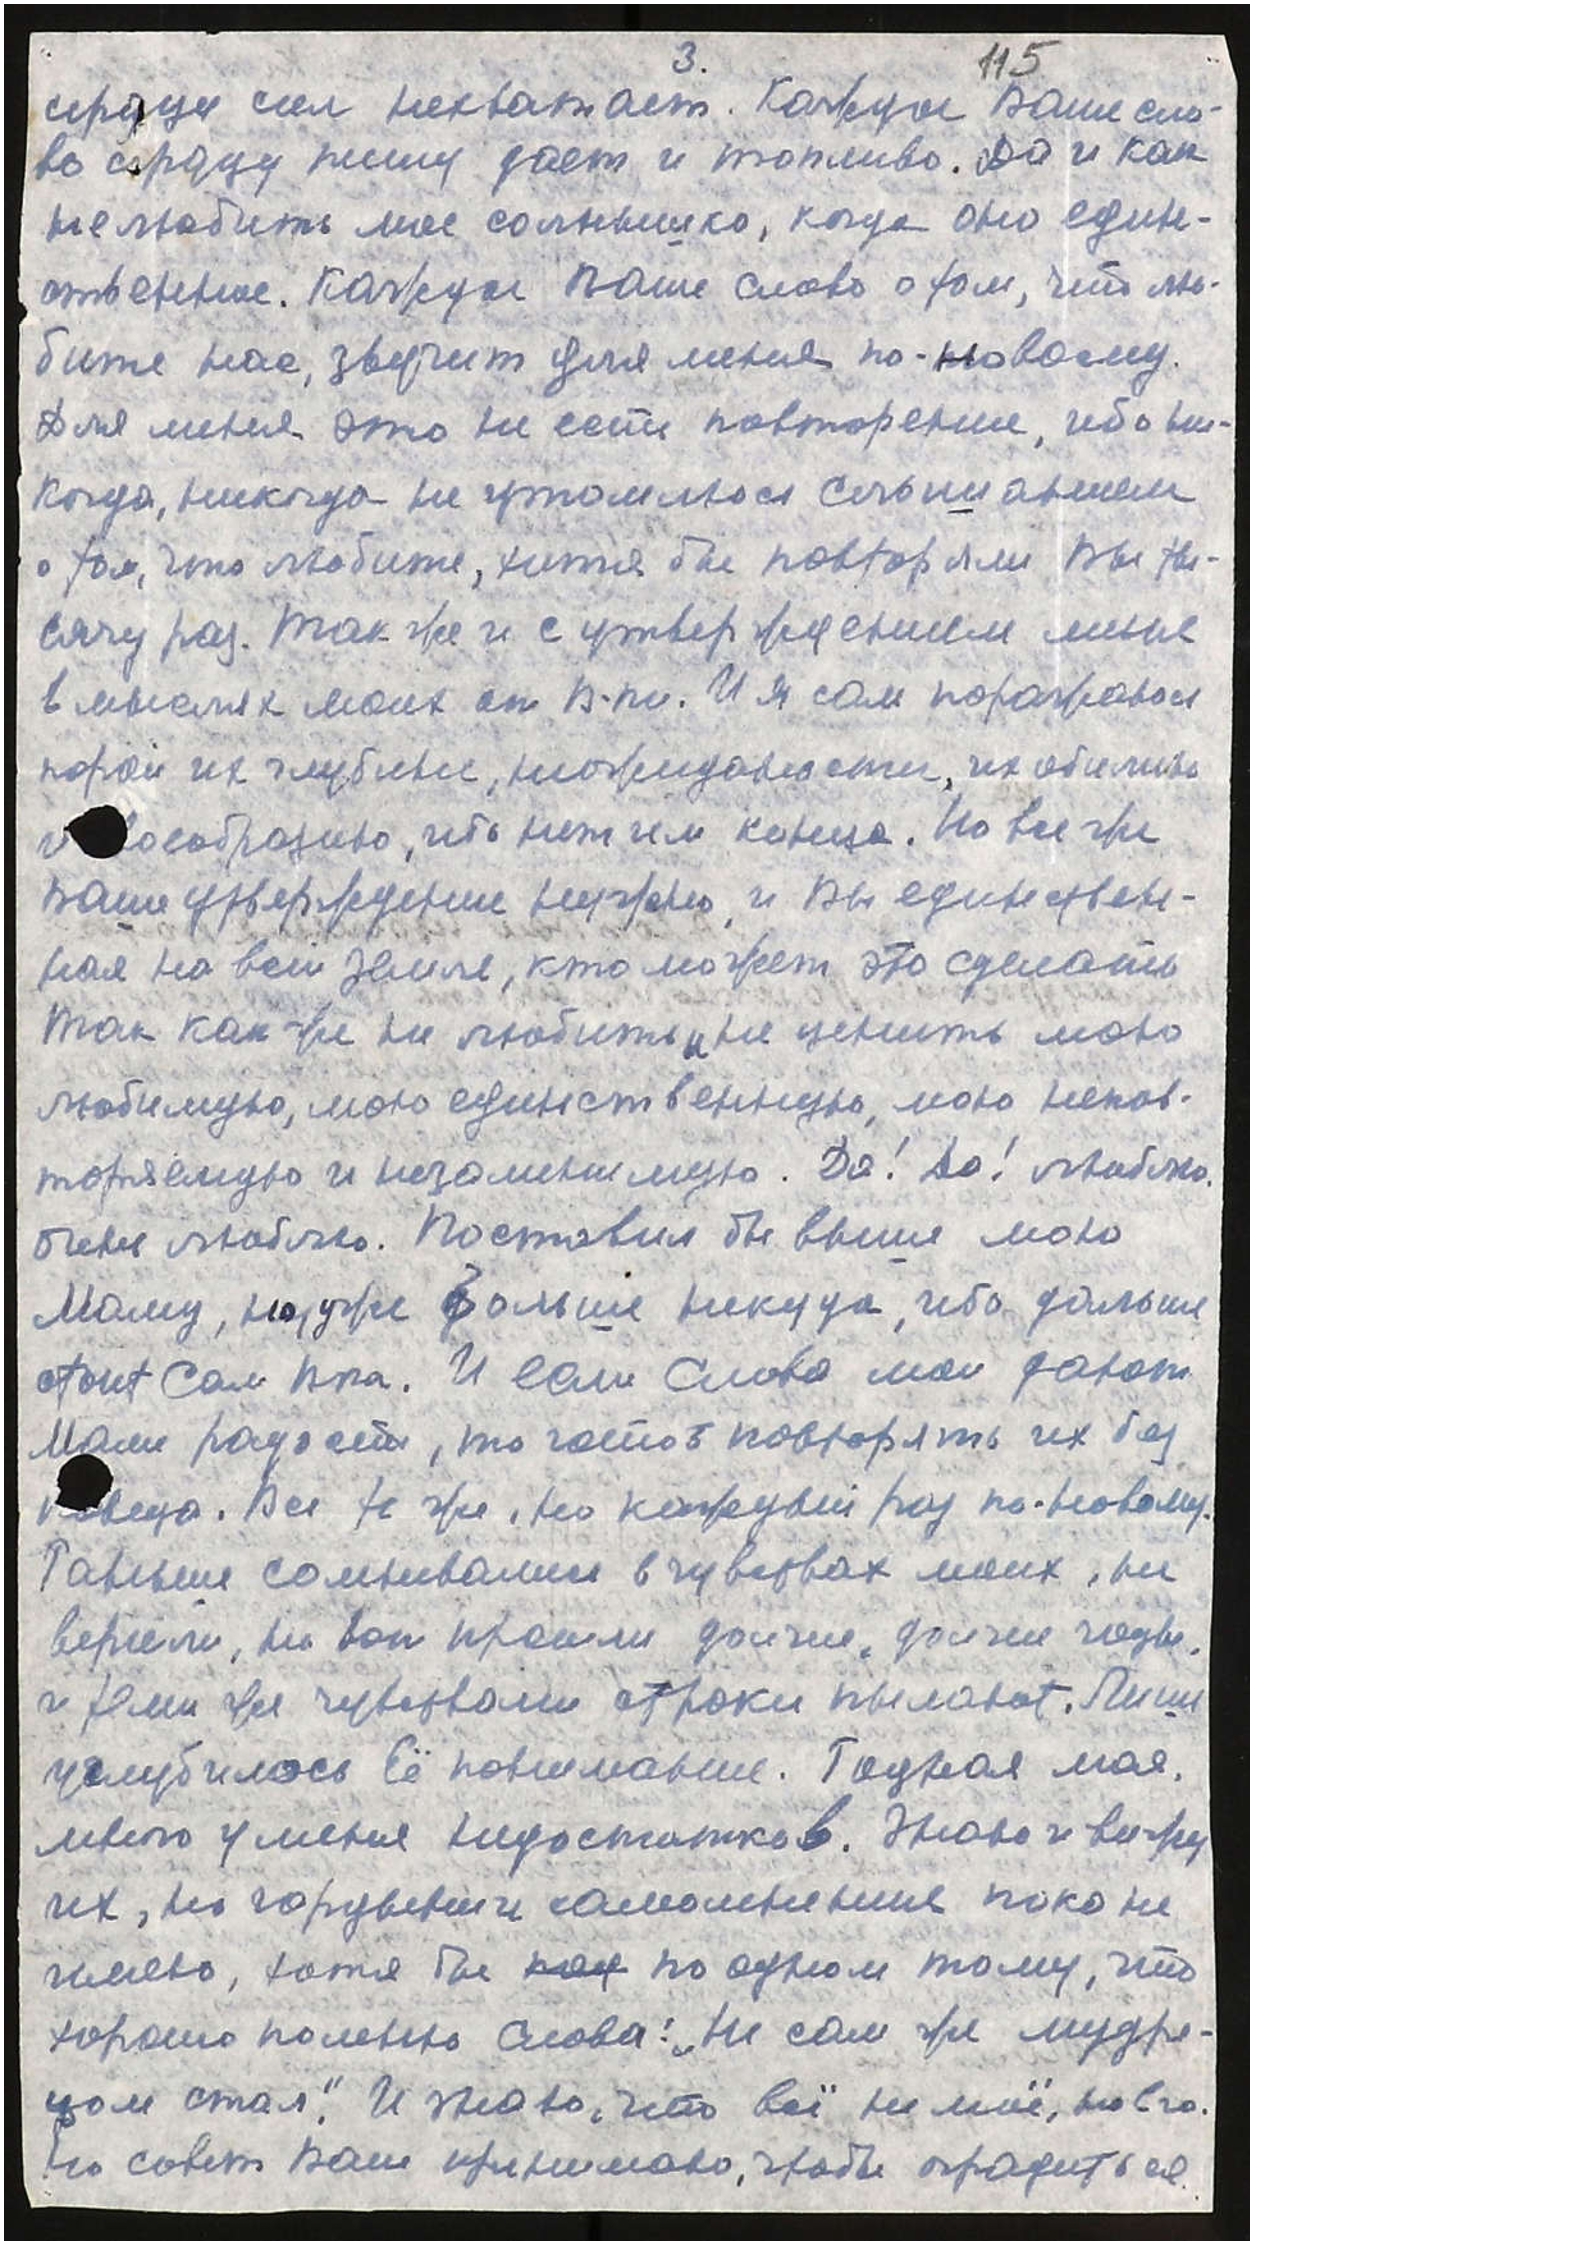 3. 115
сердце сил нехватает. Каждое Ваше сло-
во сердцу пищу дает и топливо. Да и как
не любить мое солнышко, когда оно един-
ственное. Каждое Ваше слово о том, что лю-
бите нас, звучит для меня по-новому.
Для меня это не есть повторение, ибо ни-
когда, никогда не утомлюся слышанием
о том, что любите, хотя бы повторяли Вы ты-
сячу раз. Так же и с утверждением меня
в мыслях моих от В-ки. И я сам поражаюся
порой их глубине, неожиданности, их обилию
и воеобразию, ибо нет им конца. Но все же
Ваше утверждение нужно, и Вы единствен-
ная на всей Земле, кто может это сделать
Так как же не любить и не ценить мою
любимую, мою единственную, мою непов-
торяемую и незаменимую. Да! Да! люблю.
очень люблю. Поставил бы выше мою
Маму, но уже больше некуда, ибо дальше
стоит Сам Вка. И если Слова мои дают
Маме радость, то готов повторять их без
конца. Все те же, но каждый раз по-новому.
Раньше сомневалися в чувствах моих, не
верили, но вот прошли долгие, долгие годы,
и теми же чувствами строки пылают. Лишь
углубилось Её понимание. Родная моя,
много у меня недостатков. Знаю и вижу
их, но гордыни и самомнения пока не
имею, хотя бы по одному тому, что
хорошо помню Слова: „Не сам же мудре-
цом стал". И знаю, что всё не моё, но Его.
Но совет Ваш принимаю, чтобы оградиться